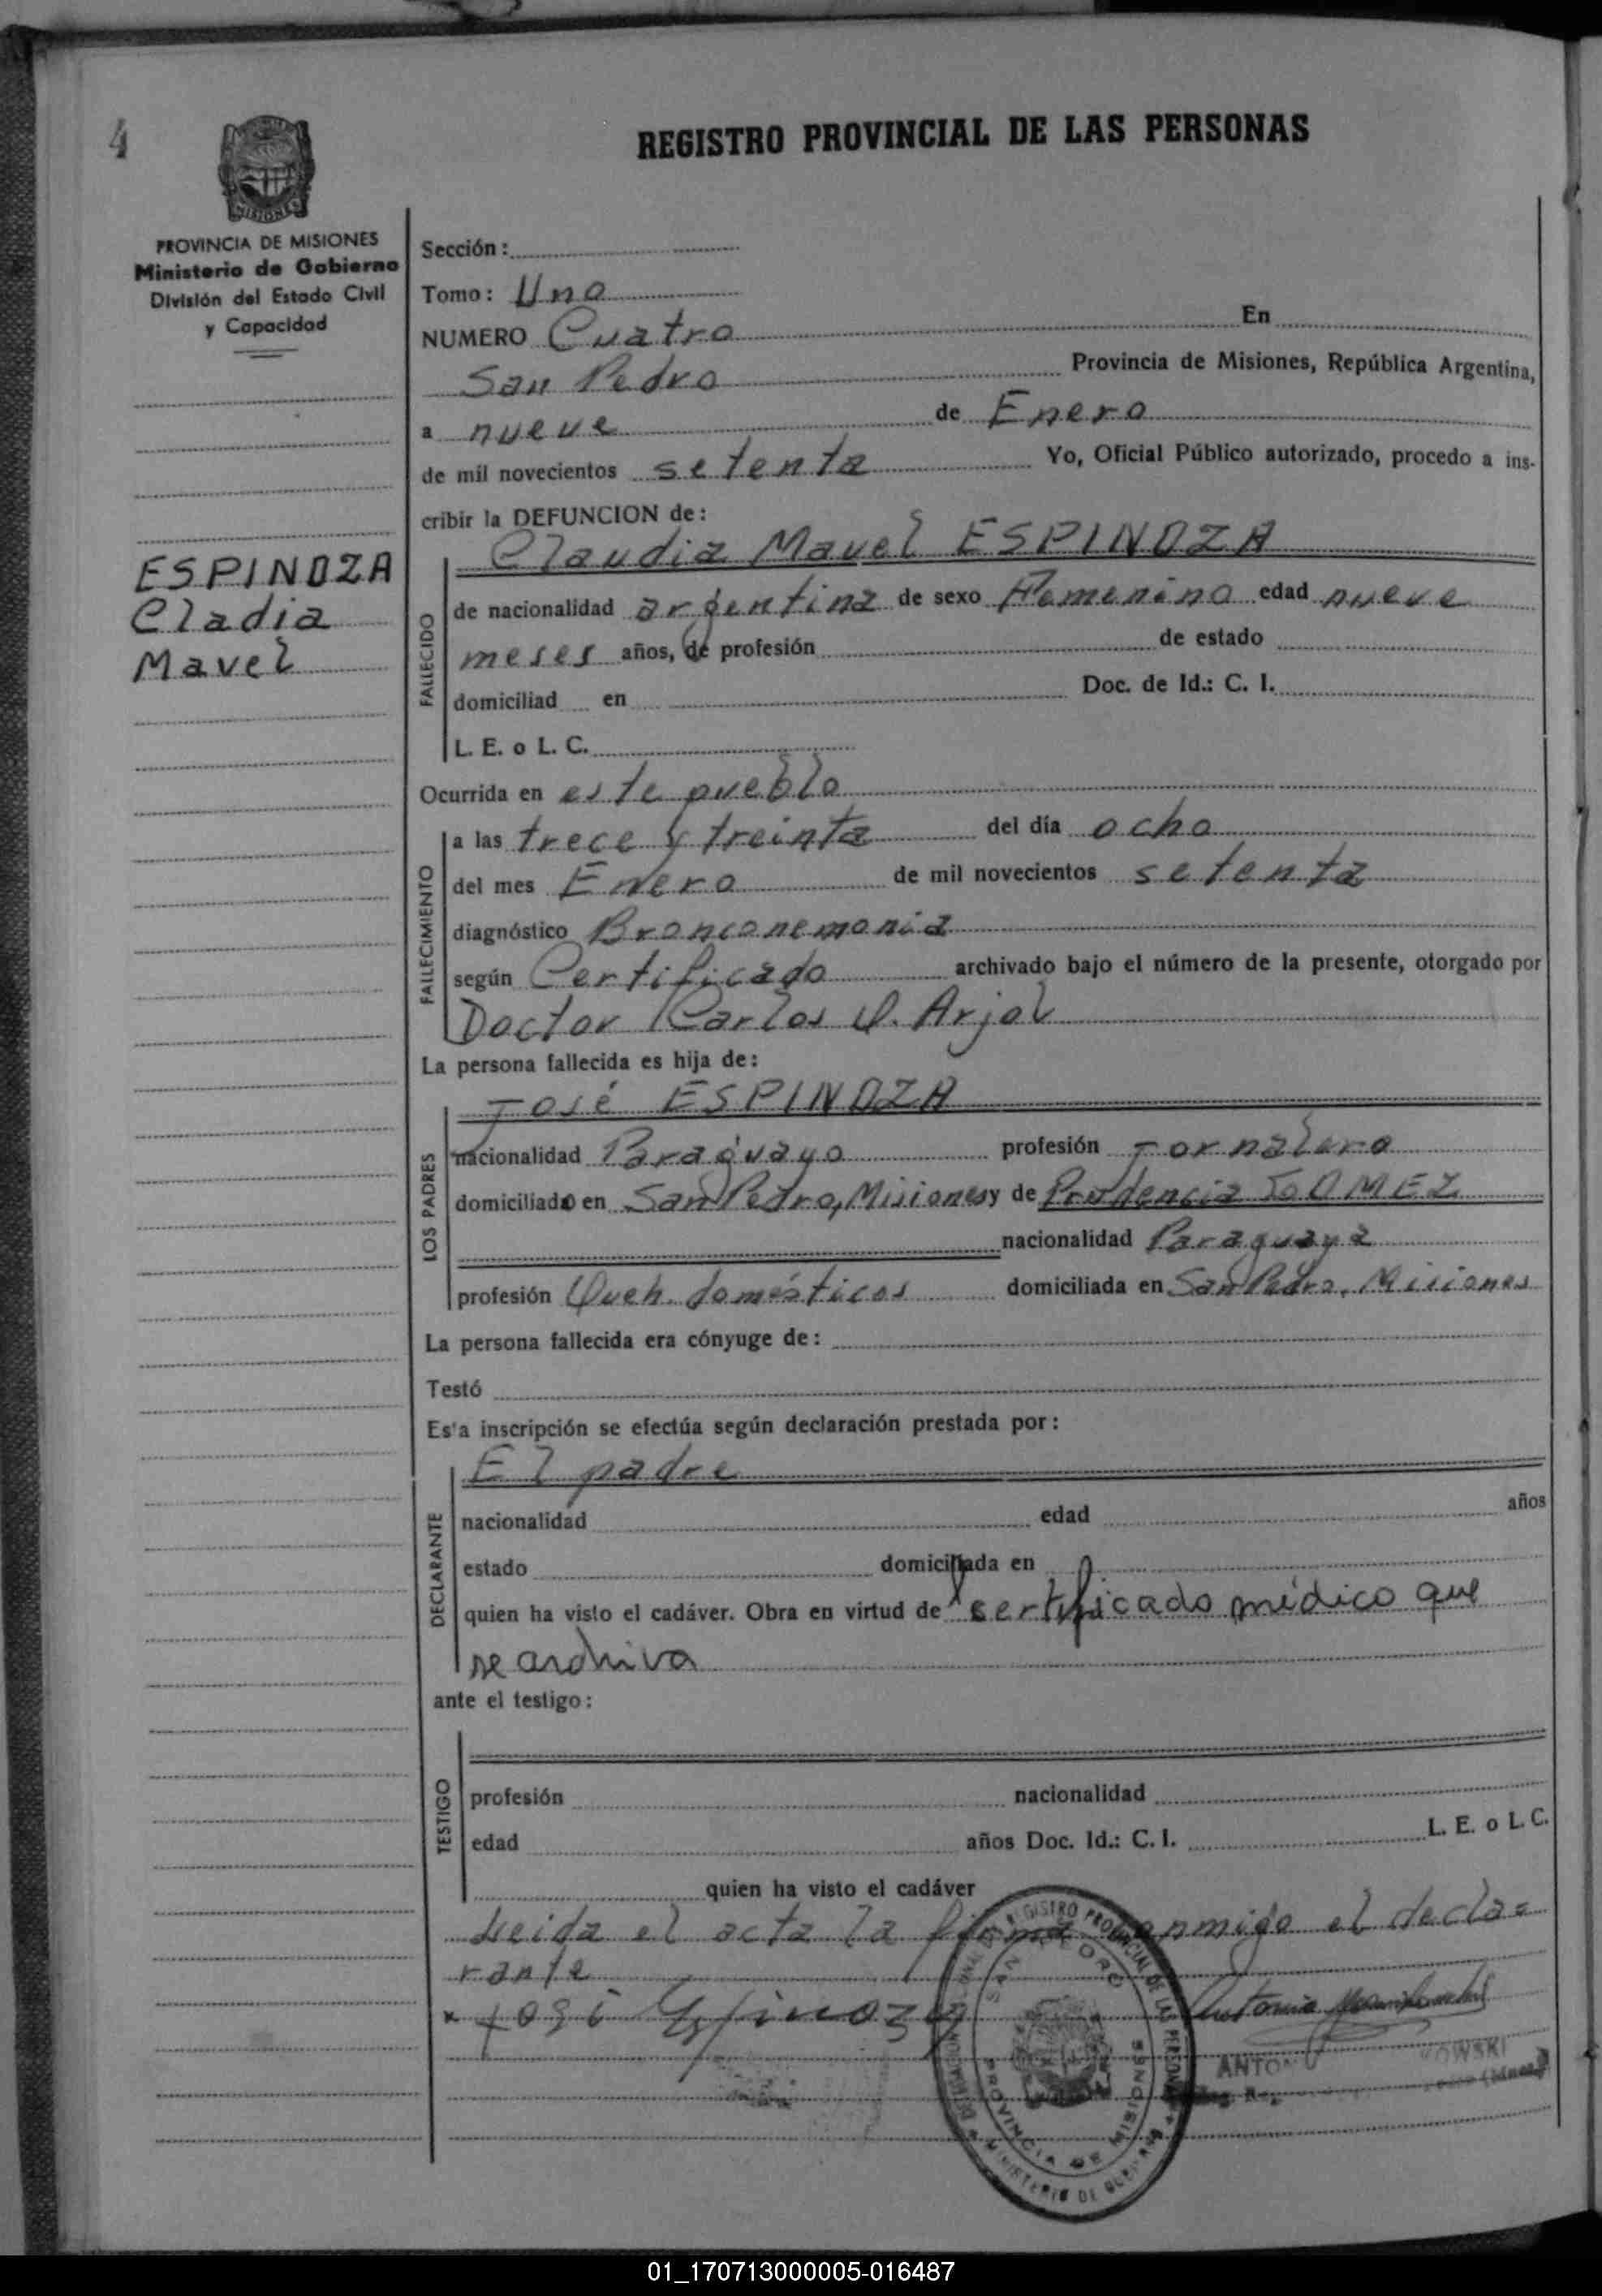 4
REGISTRO PROVINCIAL DE LAS PERSONAS
MISIONES
PROVINCIA DE MISIONES
Ministerio de Gobierno
División del Estado Civil
y Capacidad
ESPINOZA
Cladia
Mavel
Sección:
Tomo: Uno
NUMERO Cuatro En
San Pedro Provincia de Misiones, República Argentina,
a nueve de Enero
de mil novecientos setenta Yo, Oficial Público autorizado, procedo a ins-
cribir la DEFUNCION de:
Claudia Mavel ESPINOZA
FALLECIDO
de nacionalidad argentina de sexo Femenino edad nueve
meses años, de profesión de estado
domiciliad en Doc. de Id.: C. I.
L. E. o L. C.
Ocurrida en este pueblo
FALLECIMIENTO
a las trece y treinta del día ocho
del mes Enero de mil novecientos setenta
diagnóstico Bronconemonia
según Certificado archivado bajo el número de la presente, otorgado por
Doctor Carlos Arjol
La persona fallecida es hija de:
José ESPINOZA
LOS PADRES
nacionalidad Paraguayo profesión Jornalero
domiciliado en San Pedro, Misiones y de Prudencia GOMEZ
nacionalidad Paraguaya
profesión Queh. domésticos domiciliada en San Pedro, Misiones
La persona fallecida era cónyuge de:
Testó
Es'a inscripción se efectúa según declaración prestada por:
El padre
DECLARANTE
nacionalidad edad años
estado domiciliada en
quien ha visto el cadáver. Obra en virtud de certificado médico que
se archiva
ante el testigo:
TESTIGO
profesión nacionalidad
edad años Doc. Id.: C. I. L. E. o L. C.
quien ha visto el cadáver
Leida el acta la firma conmigo el decla=
rante
x José Espinoza Antonio
REGISTRO PROVINCIAL DE LAS PERSONAS
SAN PEDRO
PROVINCIA DE MISIONES
MINISTERIO DE GOBIERNO
01_170713000005-016487